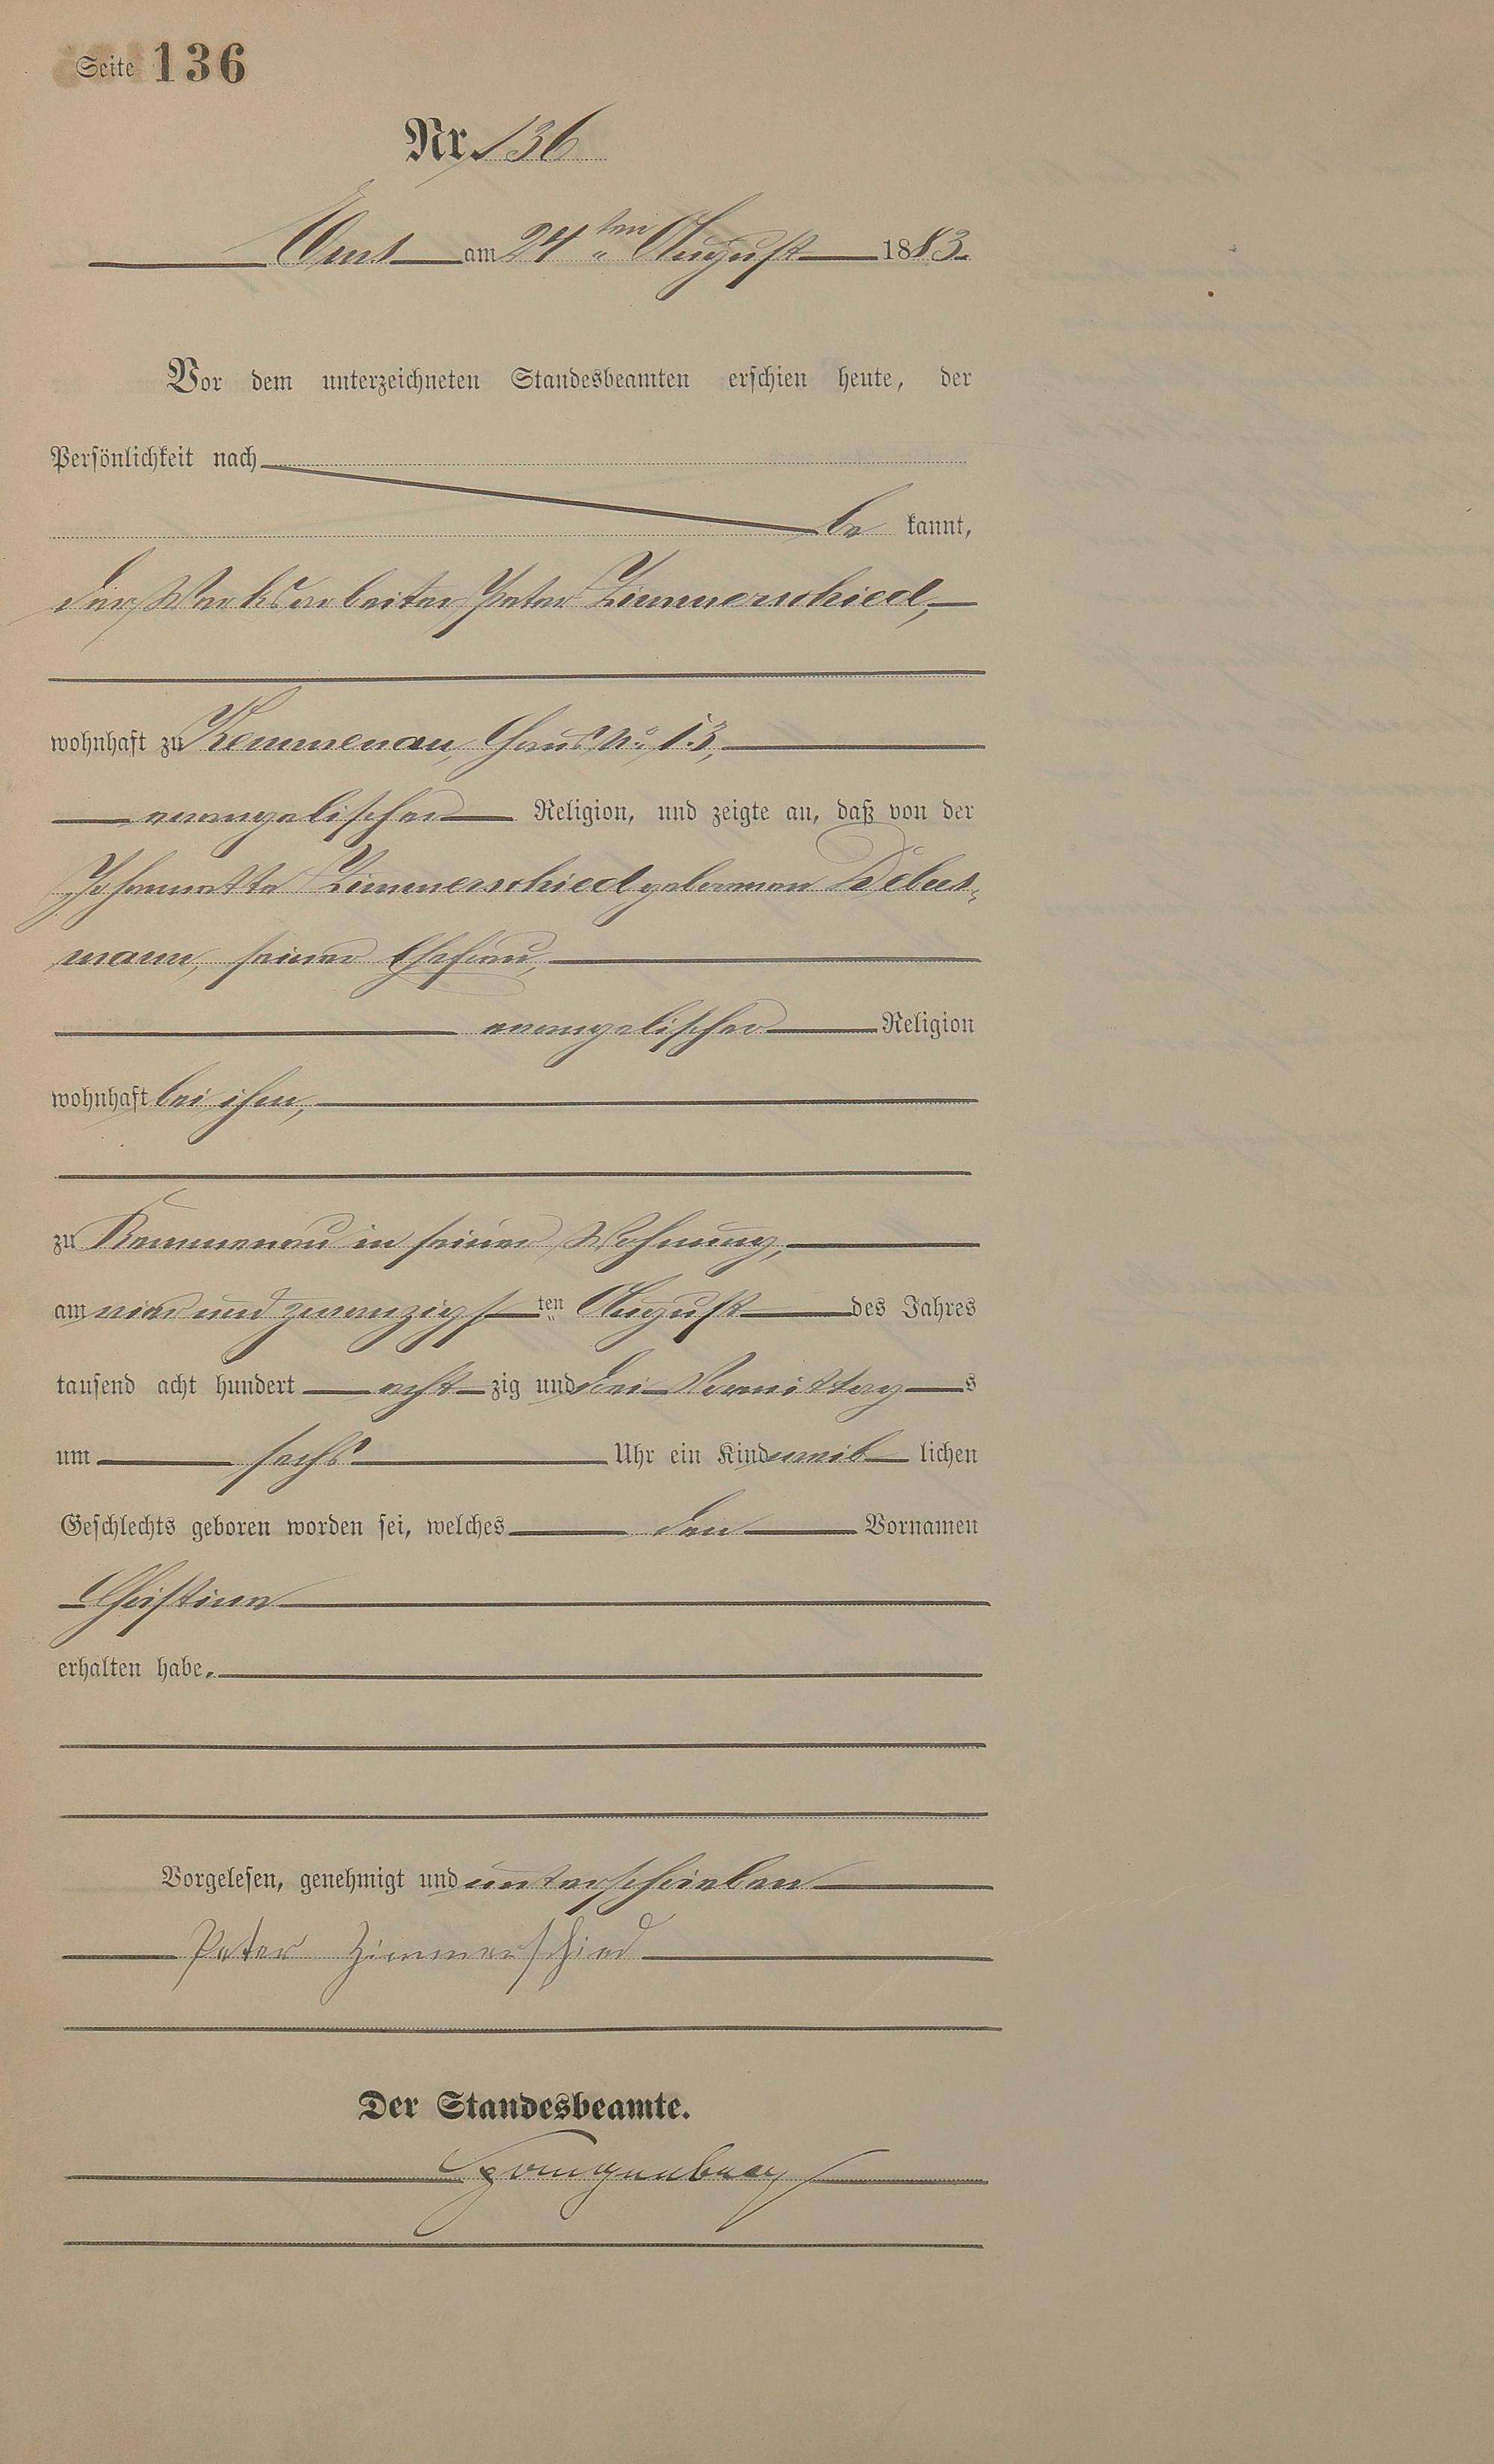 Seite 136
Nr. 136
Ems am 24ten August 1883.
Vor dem unterzeichneten Standesbeamten erschien heute, der
Persönlichkeit nach
be kannt,
der Werksarbeiter Peter Zimmerschied,
wohnhaft zu Kemmenau, Haus No. 13,
evangelischer Religion, und zeigte an, daß von der
Johannette Zimmerschied geborenen Debus-
mann, seiner Ehefrau,
evangelischer Religion
wohnhaft bei ihm,
zu Kemmenau in seiner Wohnung,
am vier und zwanzigsten August des Jahres
tausend acht hundert acht zig und drei Vormittags
um sechs Uhr ein Kind weib lichen
Geschlechts geboren worden sei, welches den Vornamen
Christine
erhalten habe.
Vorgelesen, genehmigt und unterschrieben
Peter Zimmerschied
Der Standesbeamte.